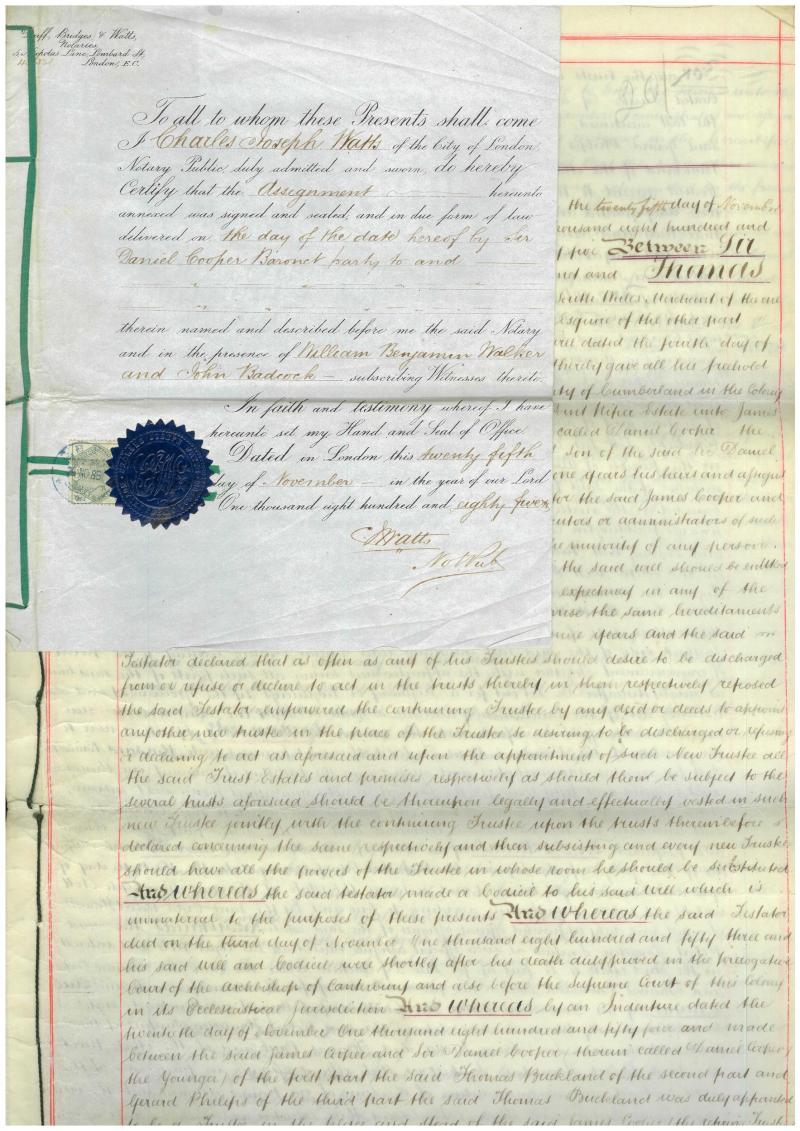 Duff, Bridges, & Watts,
Notaries,
Nicholas Lane, Lombard St,
London, E.C.
To all to whom these Presents shall come
I Charles Joseph Watts of the City of London
Notary Public, duly admitted and sworn, do hereby
Certify that the Assignment hereunto
annexed was signed and sealed, and in due form of law
delivered on the day of the date hereof by Sir
Daniel Cooper Baronet party to and
therein named and described before me the said Notary
and in the presence of William Benjamin Walker
and John Badcock subscribing Witnesses thereto.
In faith and testimony whereof I have
hereunto set my Hand and Seal of Office
Dated in London this twenty fifth
day of November in the year of our Lord
One thousand eight hundred and eighty five
Watts
Not Pub
the twenty fifth day of November
thousand eight hundred and
five Between Sir
and Thomas
South Wales Merchant of the one
Esquire of the other part
will dated the fourth day of
thereby gave all his freehold
ty of Cumberland in the Colony
Estate unto James
called Daniel Cooper the
son of the said Sir Daniel
one years his heirs and assigns
for the said James Cooper and
cutors or administrators of such
he minority of any person
the said will should be entitled
expectancy in any of the
mise the same hereditaments
years and the said
Testator declared that as often as any of his Trustees should desire to be discharged
from or refuse or decline to act in the trusts thereby in them respectively reposed
the said Testator empowered the continuing Trustee by any deed or deeds to appoint
any other new trustee in the place of the Trustee so desiring to be discharged or refusing
or declining to act as aforesaid and upon the appointment of such New Trustee all
the said Trust Estates and premises respectively as should then be subject to the
several trusts aforesaid should be thereupon legally and effectually vested in such
new Trustee jointly with the continuing Trustee upon the trusts thereinbefore
declared concerning the same respectively and then subsisting and every new Trustee
should have all the powers of the Trustee in whose room he should be substituted
And whereas the said testator made a Codicil to his said will which is
immaterial to the purposes of these presents And whereas the said Testator
died on the third day of November One thousand eight hundred and fifty three and
his said will and Codicil were shortly after his death duly proved in the Prerogative
Court of the Archbishop of Canterbury and also before the Supreme Court of this Colony
in its Ecclesiastical Jurisdiction And whereas by an Indenture dated the
twentieth day of November One thousand eight hundred and fifty four and made
between the said James Cooper and Sir Daniel Cooper (therein called Daniel Cooper
the Younger) of the first part the said Thomas Buckland of the second part and
Gerard Philips of the third part the said Thomas Buckland was duly appointed
to be a Trustee in the place and stead of the said James Cooper the retiring Trustee